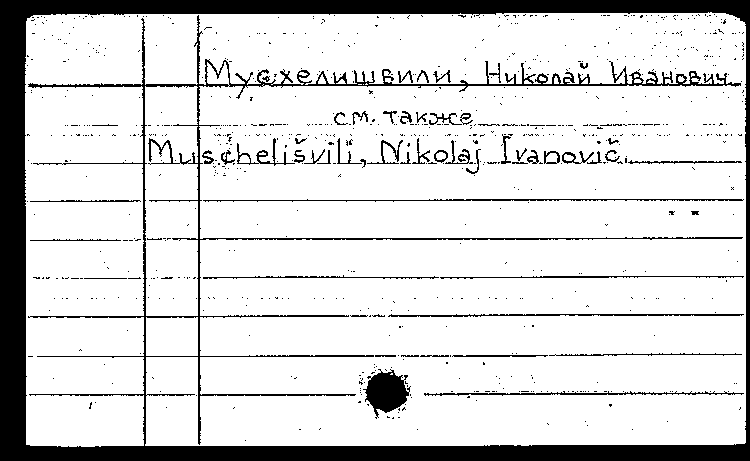 Мусхелишвили, Николай Иванович
см. также
Muschelišvili, Nikolaj Ivanovič.